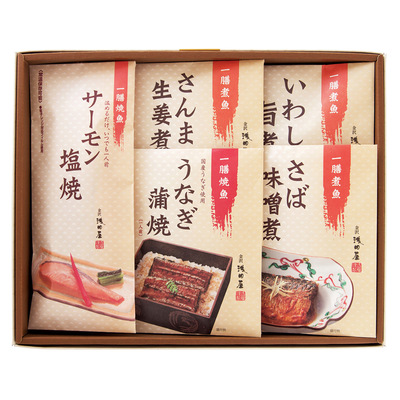 一膳焼魚
温めるだけ、いつでも一人前
サーモン
塩焼
金沢 浅田屋
一膳煮魚
さんま
生姜煮
一膳煮魚
いわし
旨煮
一膳焼魚
国産うなぎ使用
うなぎ
蒲焼
(一人前)
金沢 浅田屋
一膳煮魚
さば
味噌煮
金沢 浅田屋